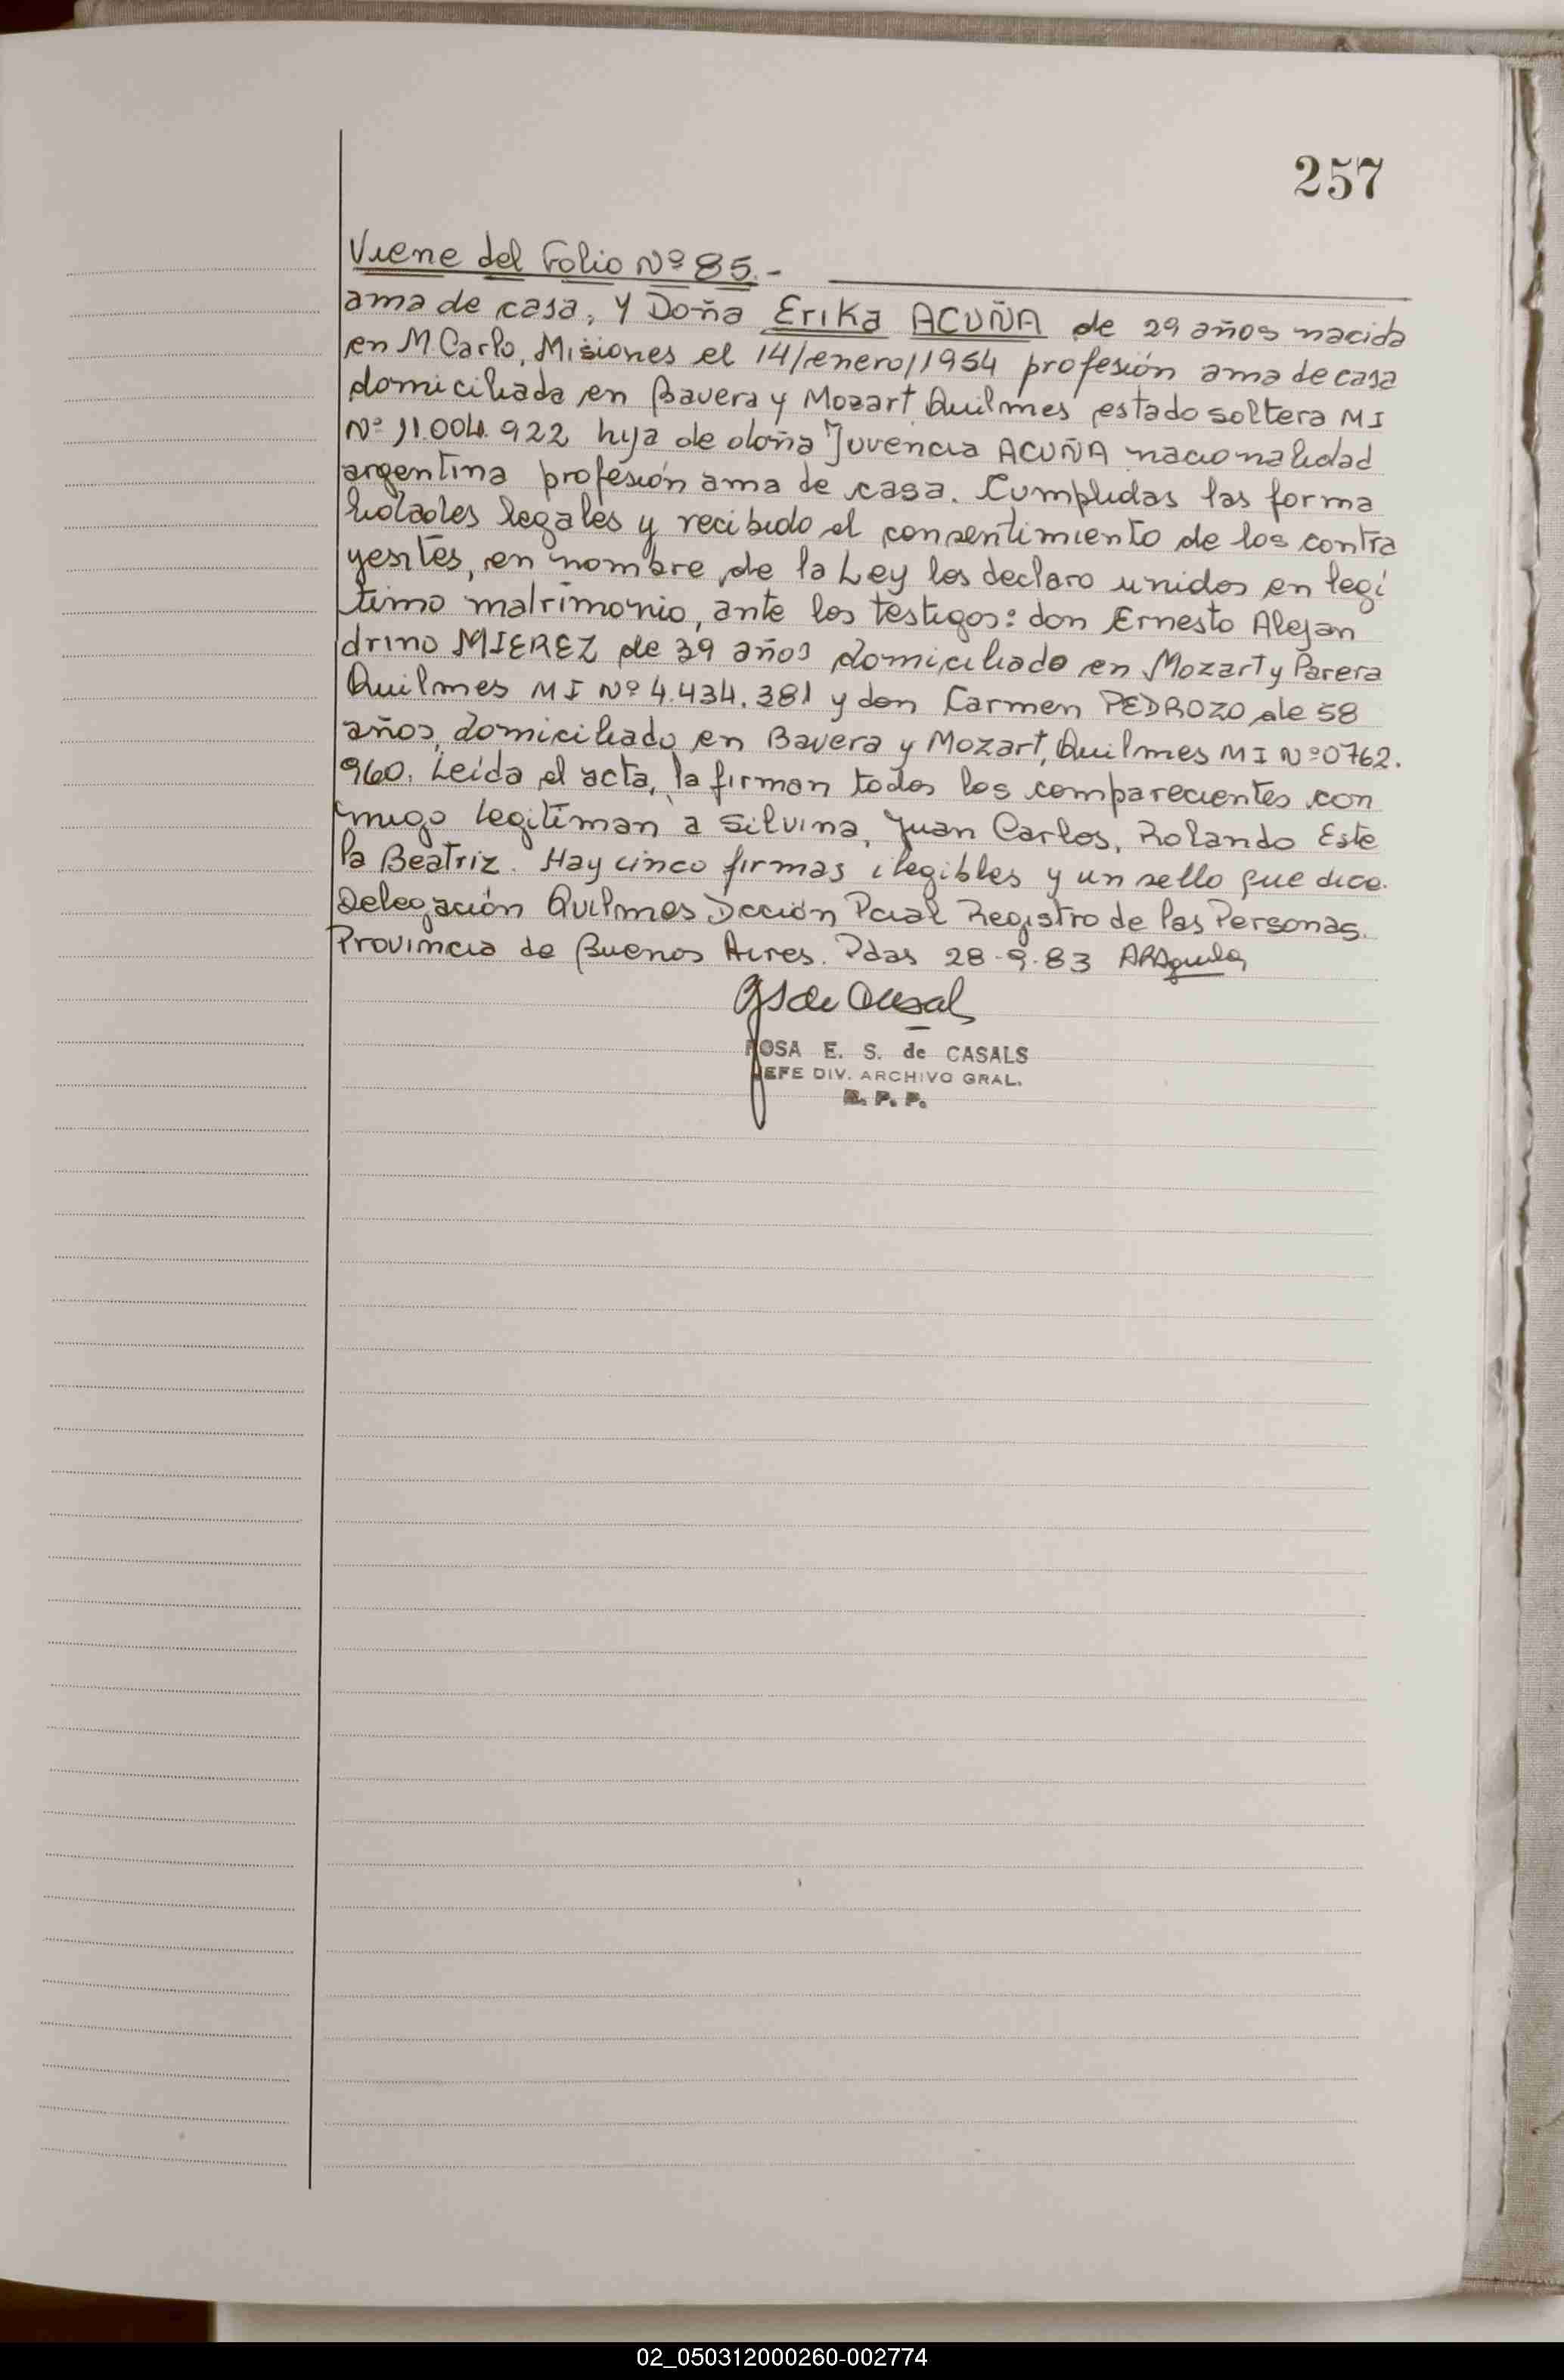 257
Viene del Folio Nº 85.-
ama de casa, y Doña Erika ACUÑA de 29 años nacida
en M. Carlo, Misiones el 14/enero/1954 profesión ama de casa
domiciliada en Bavera y Mozart Quilmes estado soltera MI
Nº 11.004.922 hija de doña Juvencia ACUÑA nacionalidad
argentina profesión ama de casa. Cumplidas las forma
lidades legales y recibido el consentimiento de los contra
yentes, en nombre de la Ley los declaro unidos en legi
timo matrimonio, ante los testigos: don Ernesto Alejan
drino MIEREZ de 39 años domiciliado en Mozart y Parera
Quilmes MI Nº 4.434.381 y don Carmen PEDROZO de 58
años, domiciliado en Bavera y Mozart, Quilmes MI Nº 0762.
960. Leída el acta, la firman todos los comparecientes con
migo legitiman a Silvina, Juan Carlos, Rolando Este
la Beatriz. Hay cinco firmas ilegibles y un sello que dice.
Delegación Quilmes Dcción Pcial Registro de las Personas.
Provincia de Buenos Aires. Pdas 28-9-83
ROSA E. S. de CASALS
JEFE DIV. ARCHIVO GRAL.
R. P. P.
02_050312000260-002774